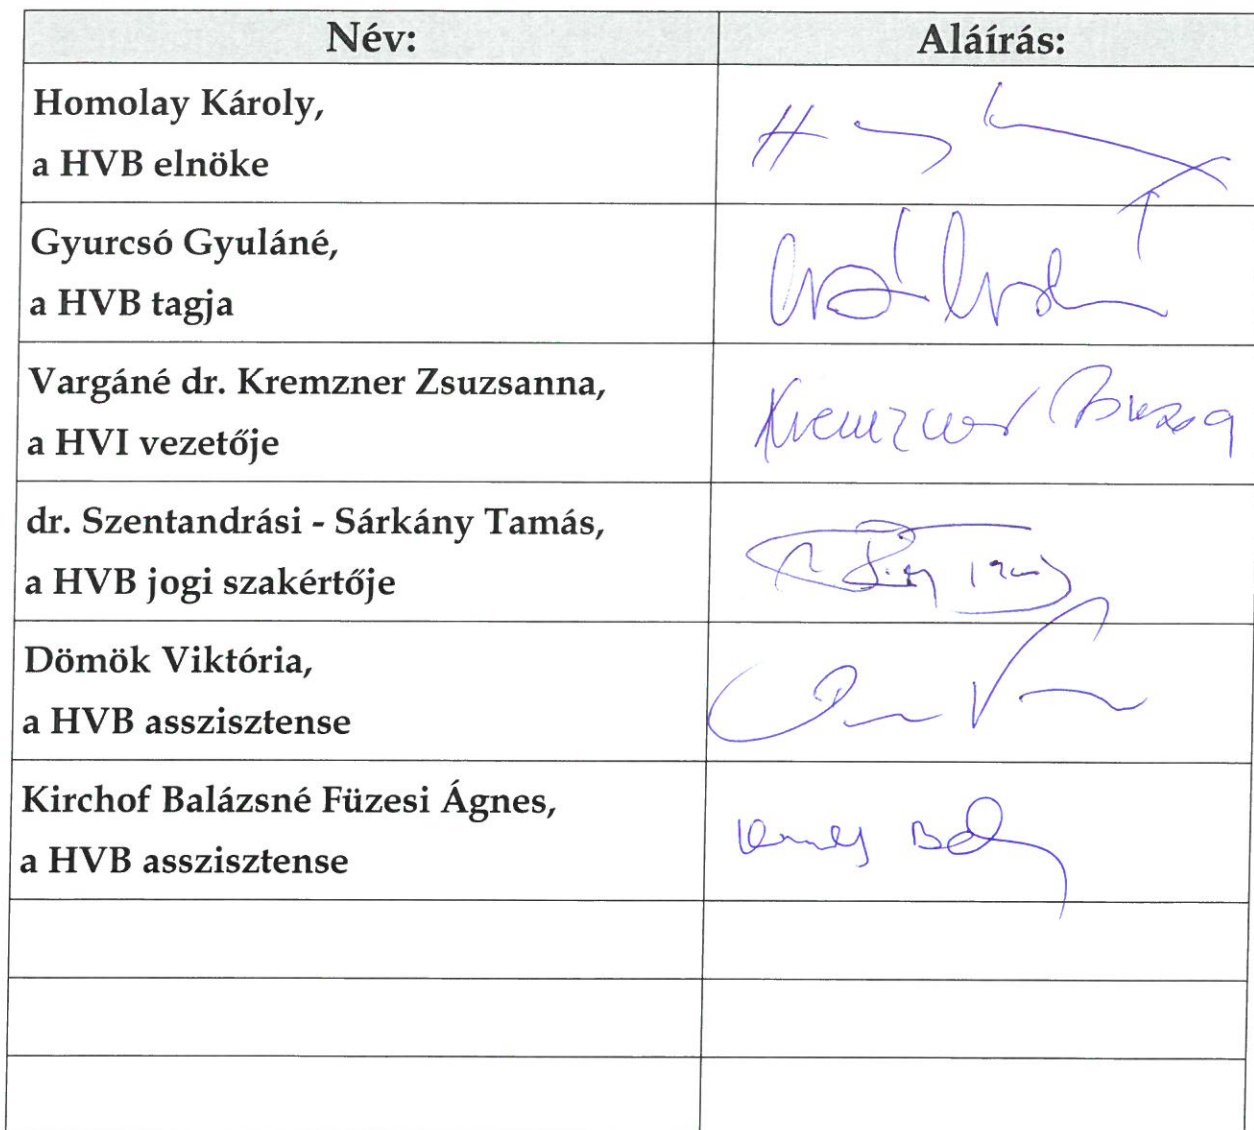 Név: Aláírás:
Homolay Károly,
a HVB elnöke
Gyurcsó Gyuláné,
a HVB tagja
Vargáné dr. Kremzner Zsuzsanna,
a HVI vezetője
Kremzner
dr. Szentandrási - Sárkány Tamás,
a HVB jogi szakértője
Dömök Viktória,
a HVB asszisztense
Kirchof Balázsné Füzesi Ágnes,
a HVB asszisztense